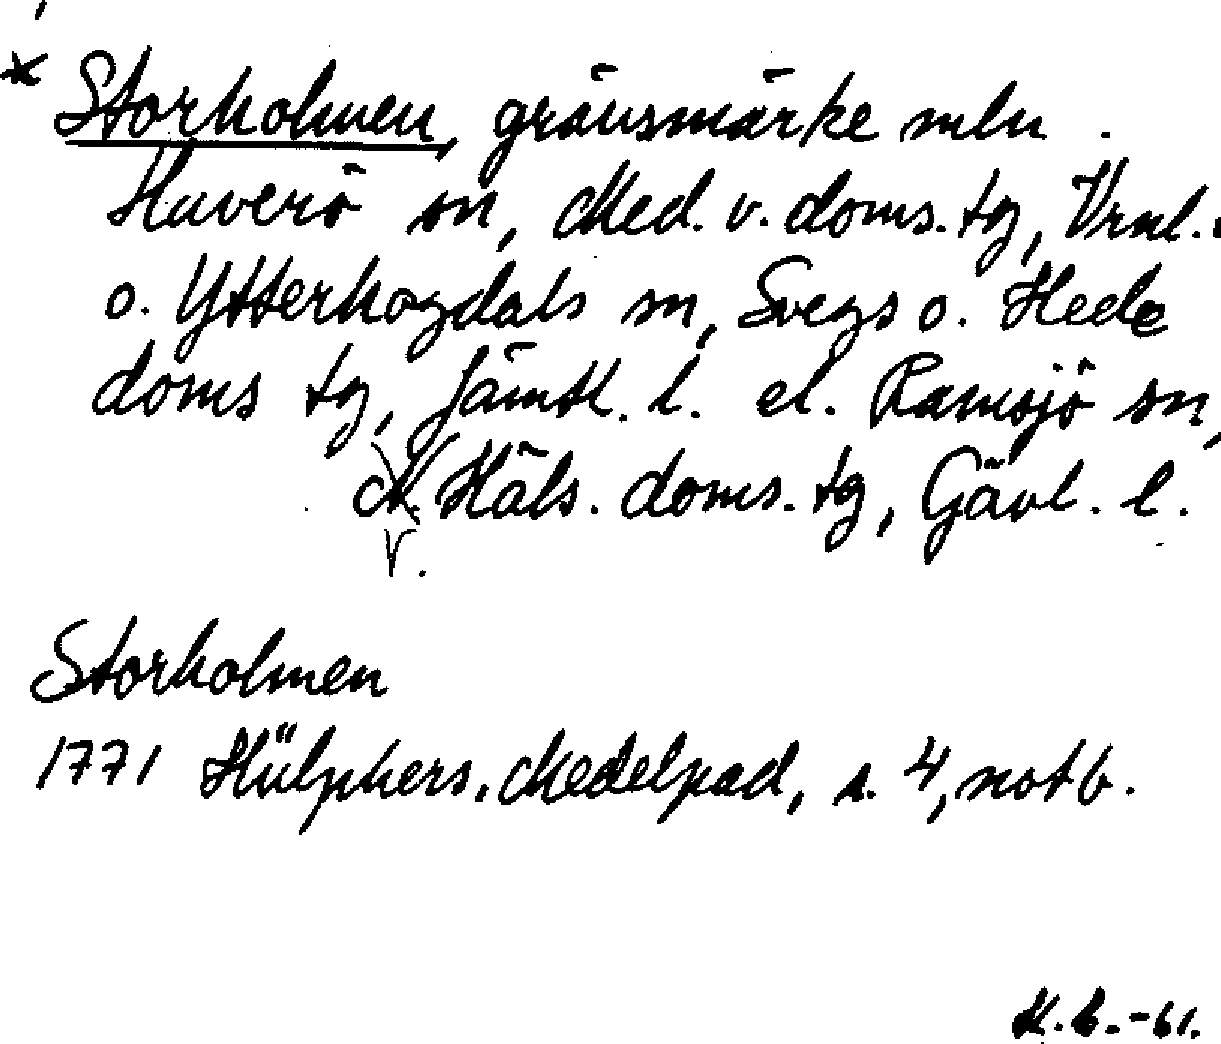 * Storholmen, gränsmärke mln .
Haverö sn, Med. v. doms. tg, Vrnl. l
o. Ytterhogdals sn, Svegs o. Hede
doms tg, Jämtl. l. el. Ramsjö sn,
N. Häls. doms. tg, Gävl. l.
V.
Storholmen
1771 Hülphers, Medelpad, s. 4, not b.
-61.